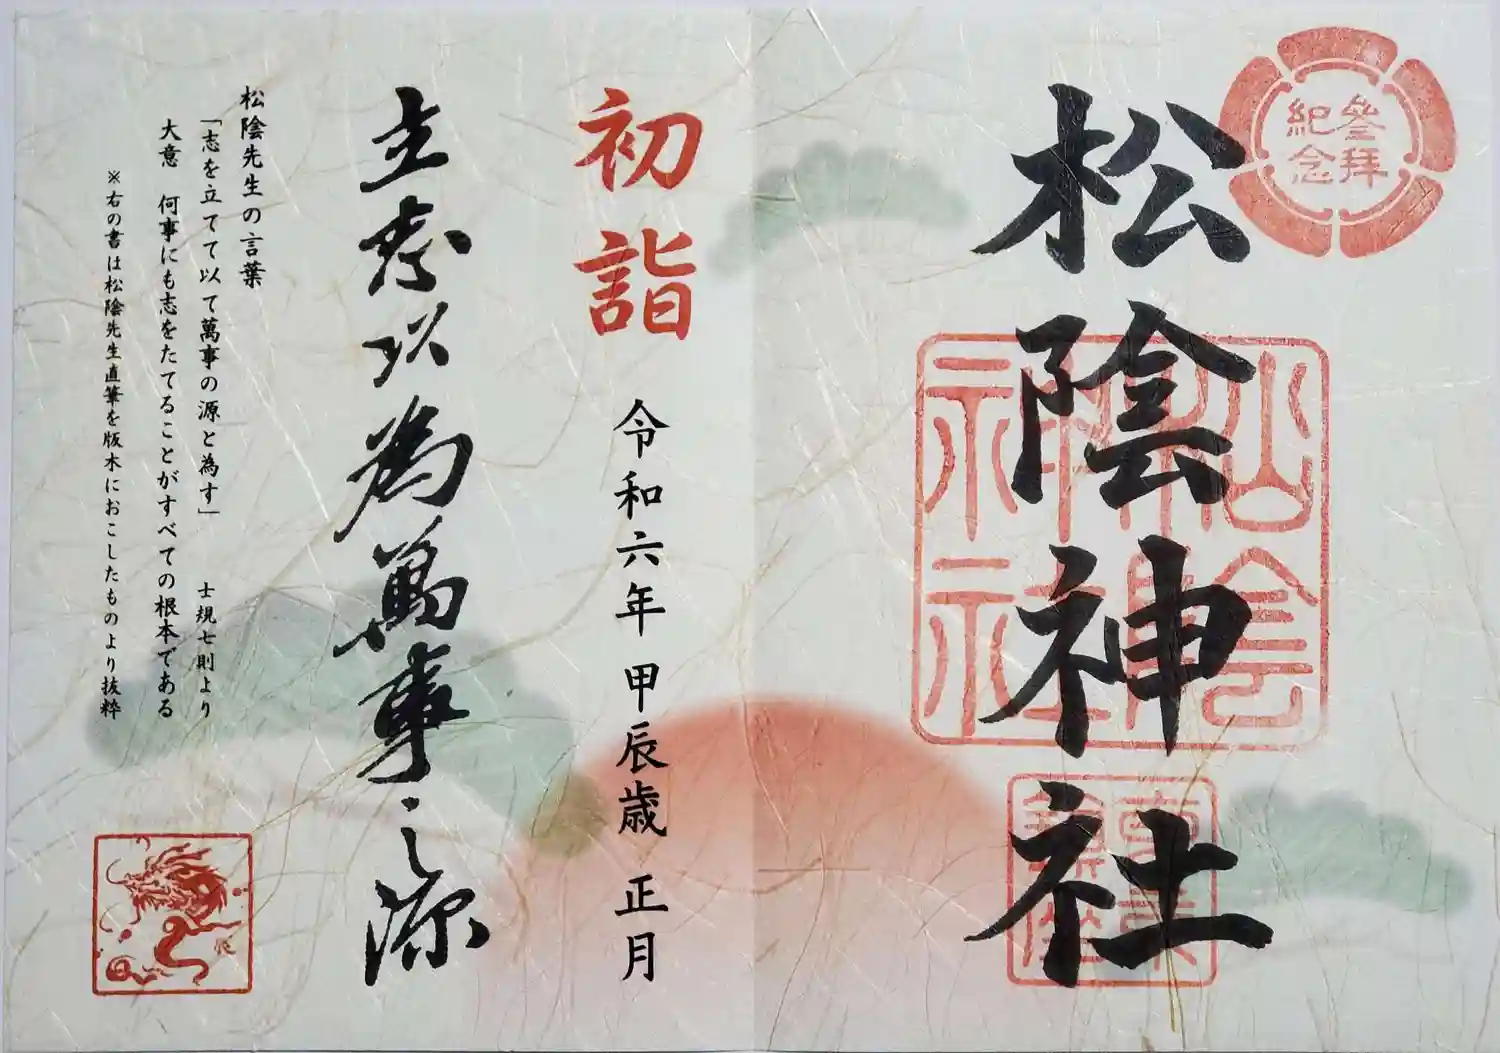 参拝
紀念
松陰神社
松陰
神社
東京
鎮座
初詣
令和六年 甲辰歳 正月
立志以為萬事之源
松陰先生の言葉
「志を立てて以て萬事の源と為す」 士規七則より
大意 何事にも志をたてることがすべての根本である
※右の書は松陰先生直筆を版木におこしたものより抜粋
辰